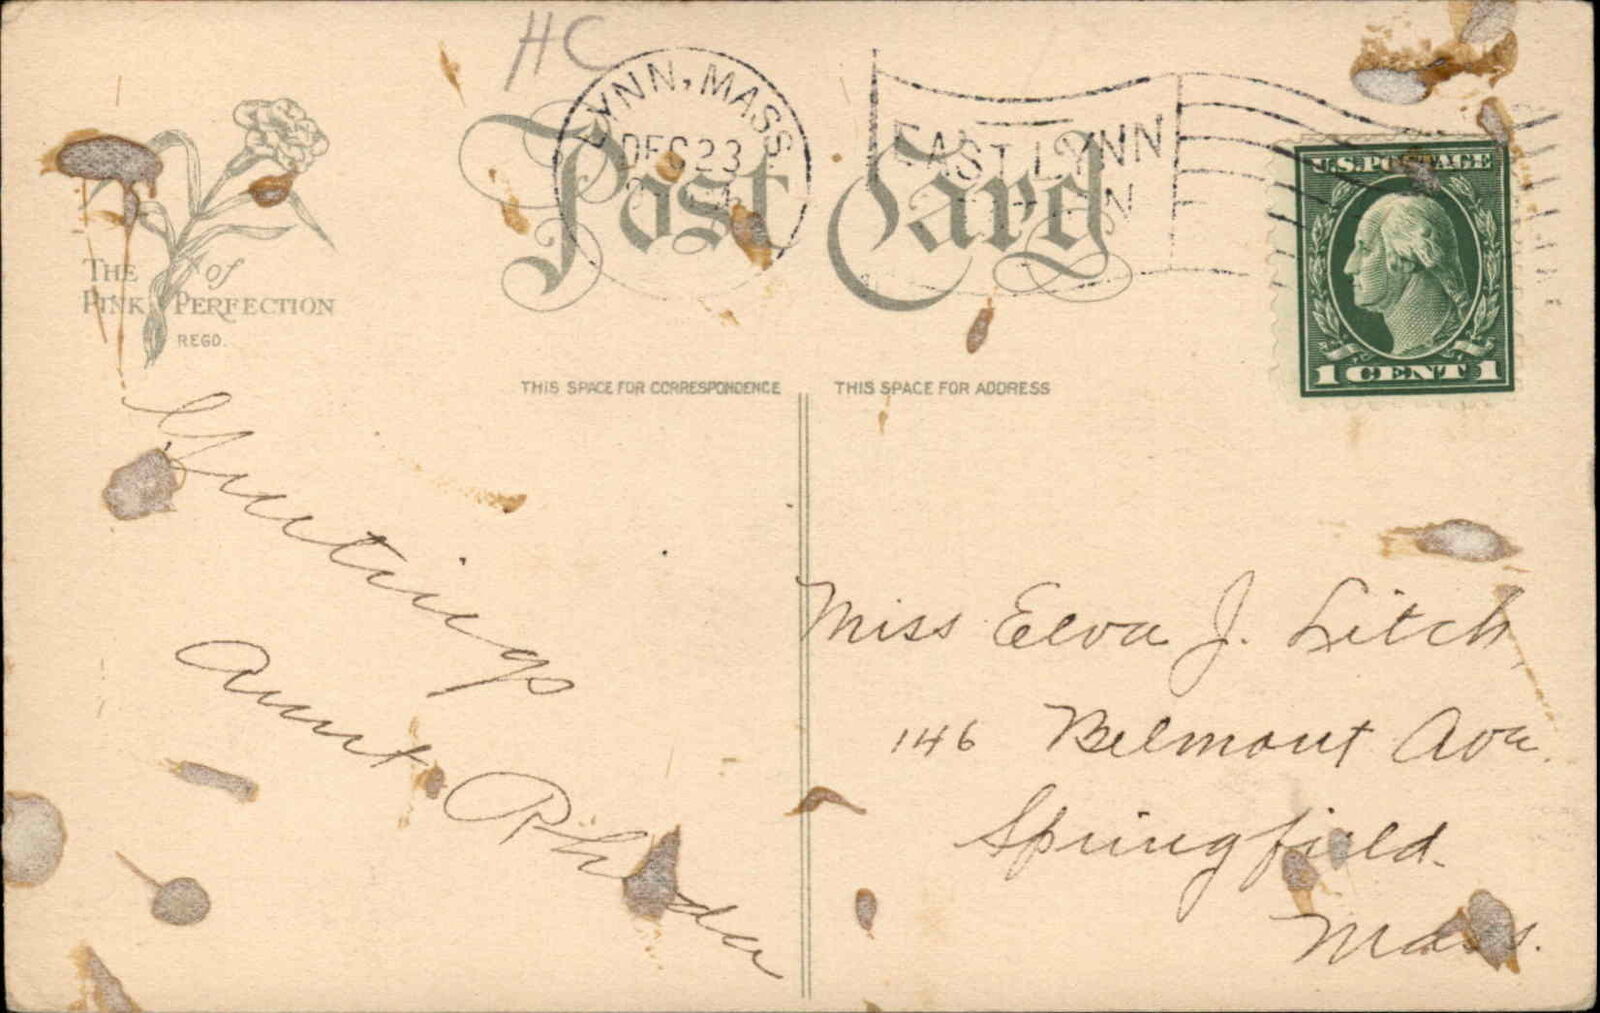 HC
LYNN, MASS.
DEC 23
EAST LYNN
U.S. POSTAGE
1 CENT 1
Post Card
THE PINK of PERFECTION
REGD.
THIS SPACE FOR CORRESPONDENCE
THIS SPACE FOR ADDRESS
Greetings
Aunt Rhoda
Miss Elva J. Litch,
146 Belmont Ave.
Springfield.
Mass.